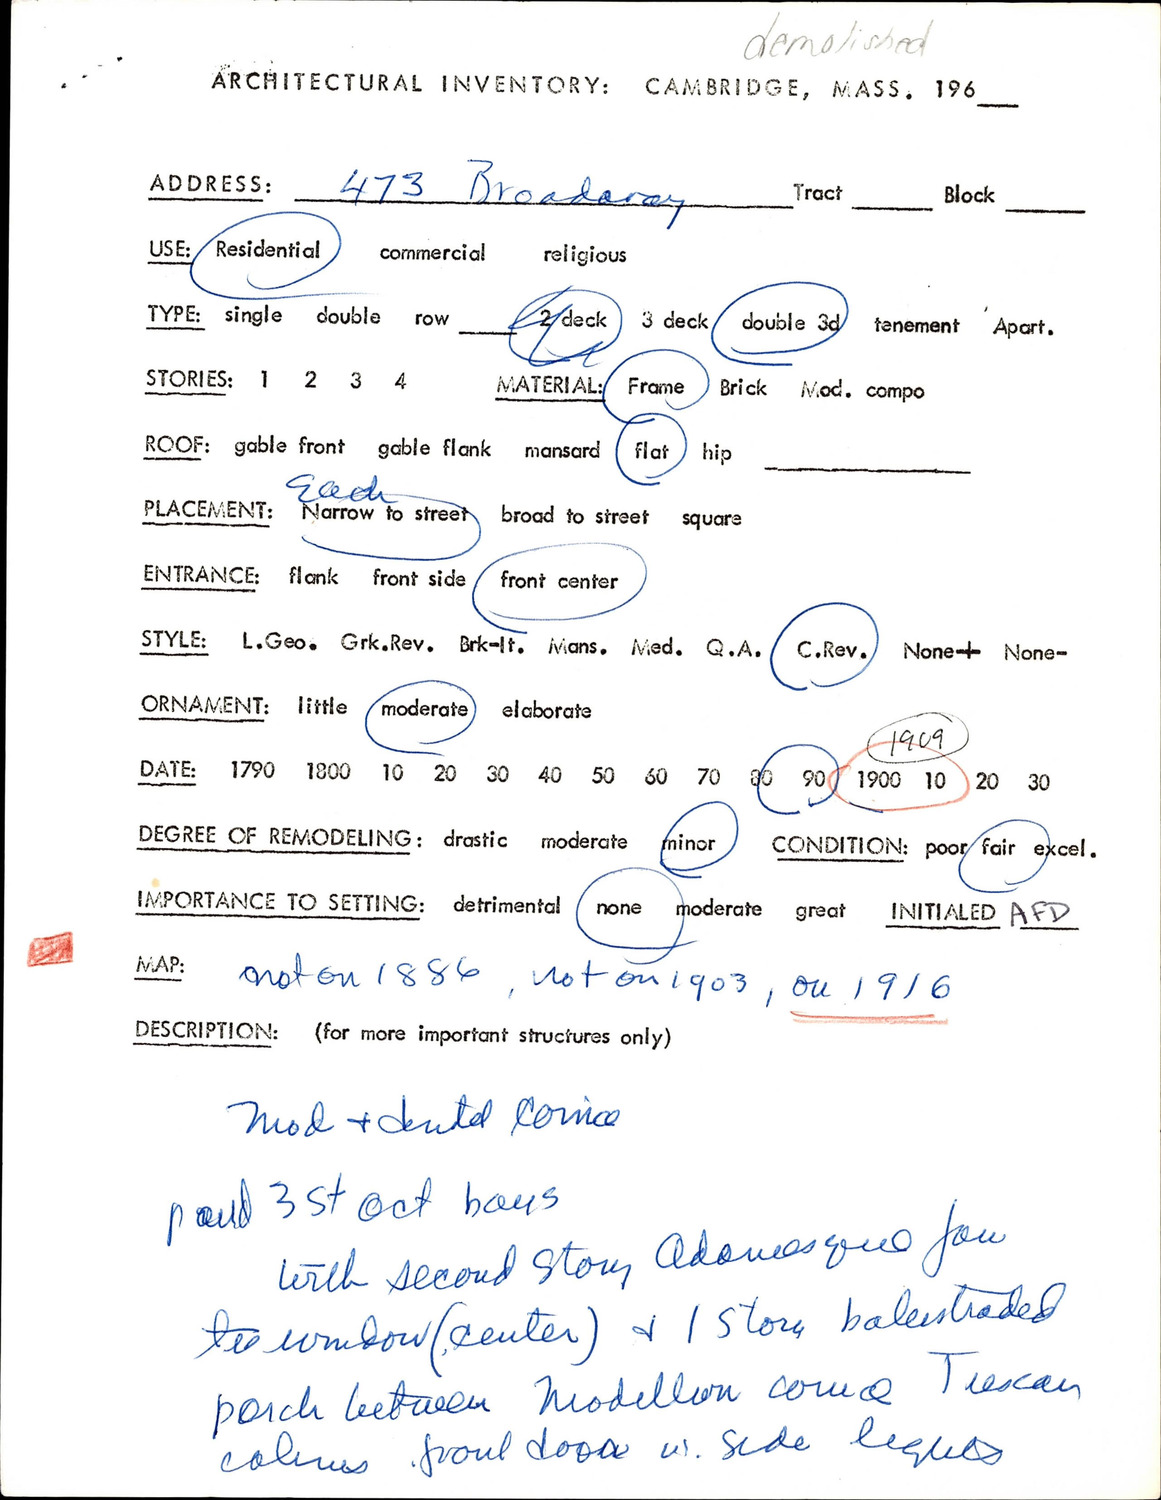 demolished
ARCHITECTURAL INVENTORY: CAMBRIDGE, MASS. 196__
ADDRESS: 473 Broadway Tract ____ Block ____
USE: Residential commercial religious
TYPE: single double row ____ 2 deck 3 deck double 3d tenement Apart.
STORIES: 1 2 3 4 MATERIAL: Frame Brick Mod. compo
ROOF: gable front gable flank mansard flat hip ____
Each
PLACEMENT: Narrow to street broad to street square
ENTRANCE: flank front side front center
STYLE: L.Geo. Grk.Rev. Brk-It. Mans. Med. Q.A. C.Rev. None+ None-
ORNAMENT: little moderate elaborate
1909
DATE: 1790 1800 10 20 30 40 50 60 70 80 90 1900 10 20 30
DEGREE OF REMODELING: drastic moderate minor CONDITION: poor fair excel.
IMPORTANCE TO SETTING: detrimental none moderate great INITIALED AFD
MAP: not on 1886, not on 1903, on 1916
DESCRIPTION: (for more important structures only)
Mod + dentd Cornice
3 st oct bays
with second story Adamesque fan
window (center) & 1 story balustraded
porch between Modillion cornice Tuscan
colums front door w. side lights